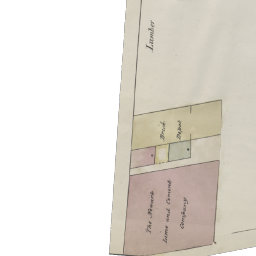 Lumber
Brick
Depot
The
Lime and Cement
Company